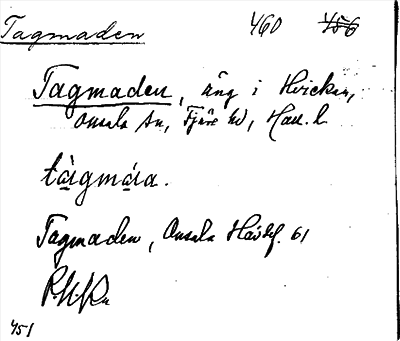 Tagmaden 460 456
Tagmaden, äng i Hvickan,
Onsala sn, Fjäre hd, Hall. l.
Tagmaden, Onsala
61
451